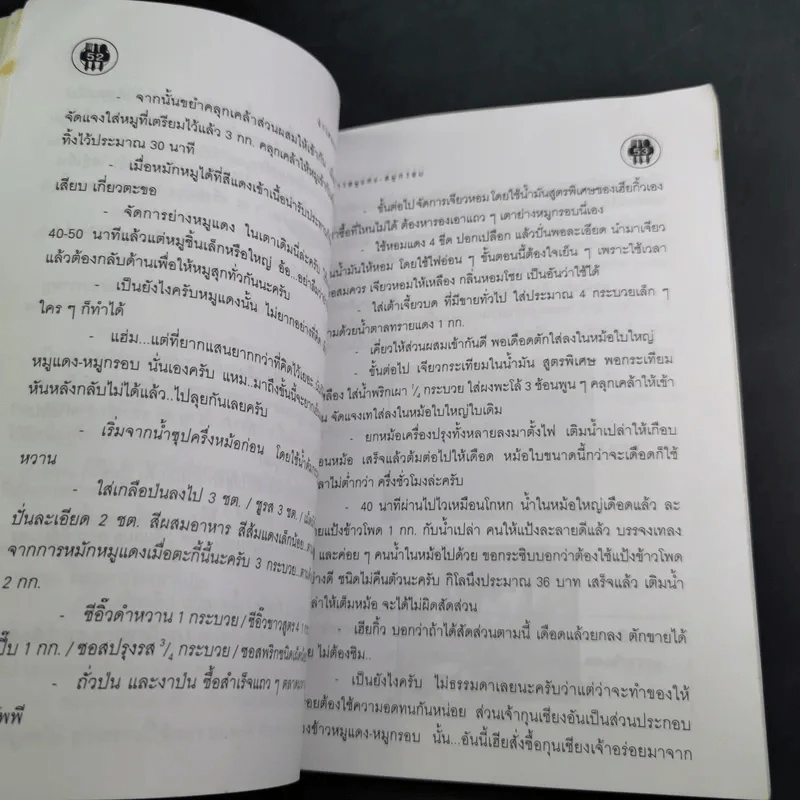 52
- จากนั้นขยำคลุกเคล้าส่วนผสมให้เข้ากัน
จัดแจงใส่หมูที่เตรียมไว้แล้ว 3 กก. คลุกเคล้าให้หมู
ทิ้งไว้ประมาณ 30 นาที
- เมื่อหมักหมูได้ที่สีแดงเข้าเนื้อน่ารับประทาน
เสียบ เกี่ยวตะขอ
- จัดการย่างหมูแดง ในเตาเดิมนี่ละครับ
40-50 นาทีแล้วแต่หมูชิ้นเล็กหรือใหญ่ อ้อ...อย่าลืม
แล้วต้องกลับด้านเพื่อให้หมูสุกทั่วกันนะครับ
- เป็นยังไงครับหมูแดงนั้น ไม่ยากอย่างที่คิด
ใคร ๆ ก็ทำได้
- แฮ่ม...แต่ที่ยากแสนยากกว่าที่คิดไว้เยอะ
หมูแดง-หมูกรอบ นั่นเองครับ แหม..มาถึงขั้นนี้จะยาก
หันหลังกลับไม่ได้แล้ว..ไปลุยกันเลยครับ
- เริ่มจากน้ำซุปครึ่งหม้อก่อน โดยใช้น้ำ
หวาน
- ใส่เกลือป่นลงไป 3 ชต. / ชูรส 3 ชต. /
ปั่นละเอียด 2 ชต. สีผสมอาหาร สีส้มแดงเล็กน้อย
จากการหมักหมูแดงเมื่อตะกี้นี้นะครับ 3 กระบวย
2 กก.
- ซีอิ๊วดำหวาน 1 กระบวย / ซีอิ๊วขาวสูตร 4 1
ปี๊บ 1 กก. / ซอสปรุงรส 3/4 กระบวย / ซอสพริกชนิด
- ถั่วป่น และงาป่น ซื้อสำเร็จแถว ๆ ตลาด
ัพพี
53
หมูแดง-หมูกรอบ
- ขั้นต่อไปจัดการเจียวหอม โดยใช้น้ำมันสูตรพิเศษของเฮียกิ้วเอง
าซื้อที่ไหนไม่ได้ ต้องหารองเอาแถว ๆ เตาย่างหมูกรอบนี่เอง
- ใช้หอมแดง 4 ขีด ปอกเปลือก แล้วปั่นพอละเอียด นำมาเจียว
นน้ำมันให้หอม โดยใช้ไฟอ่อน ๆ ขั้นตอนนี้ต้องใจเย็น ๆ เพราะใช้เวลา
อสมควร เจียวหอมให้เหลือง กลิ่นหอมโชย เป็นอันว่าใช้ได้
- ใส่เต้าเจี้ยวบด ที่มีขายทั่วไป ใส่ประมาณ 4 กระบวยเล็ก ๆ
ามด้วยน้ำตาลทรายแดง 1 กก.
- เคี่ยวให้ส่วนผสมเข้ากันดี พอเดือดตักใส่ลงในหม้อใบใหญ่
- ขั้นต่อไป เจียวกระเทียมในน้ำมัน สูตรพิเศษ พอกระเทียม
หลือง ใส่น้ำพริกเผา 1/4 กระบวย ใส่ผงพะโล้ 3 ช้อนพูน ๆ คลุกเคล้าให้เข้า
น จัดแจงเทใส่ลงในหม้อใบใหญ่ใบเดิม
- ยกหม้อเครื่องปรุงทั้งหลายลงมาตั้งไฟ เติมน้ำเปล่าให้เกือบ
อนหม้อ เสร็จแล้วต้มต่อไปให้เดือด หม้อใบขนาดนี้กว่าจะเดือดก็ใช้
ลาไม่ต่ำกว่า ครึ่งชั่วโมงล่ะครับ
- 40 นาทีผ่านไปไวเหมือนโกหก น้ำในหม้อใหญ่เดือดแล้ว ละ
ายแป้งข้าวโพด 1 กก. กับน้ำเปล่า คนให้แป้งละลายดีแล้ว บรรจงเทลง
และค่อย ๆ คนน้ำในหม้อไปด้วย ขอกระซิบบอกว่าต้องใช้แป้งข้าวโพด
ย่างดี ชนิดไม่คืนตัวนะครับ กิโลนึงประมาณ 36 บาท เสร็จแล้ว เติมน้ำ
ล่าให้เต็มหม้อ จะได้ไม่ผิดสัดส่วน
- เฮียกิ้ว บอกว่าถ้าได้สัดส่วนตามนี้ เดือดแล้วยกลง ตักขายได้
ย ไม่ต้องชิม..
- เป็นยังไงครับ ไม่ธรรมดาเลยนะครับว่าแต่ว่าจะทำของให้
่อยต้องใช้ความอดทนกันหน่อย ส่วนเจ้ากุนเชียงอันเป็นส่วนประกอบ
งข้าวหมูแดง-หมูกรอบ นั้น...อันนี้เฮียสั่งซื้อกุนเชียงเจ้าอร่อยมาจาก